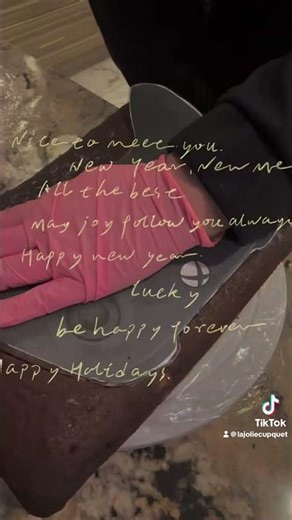 Nice to meet you.
New Year, New me
All the best
May joy follow you always
Happy new year.
lucky
be happy forever.
Happy Holidays.
TikTok
@lajoliecupquet